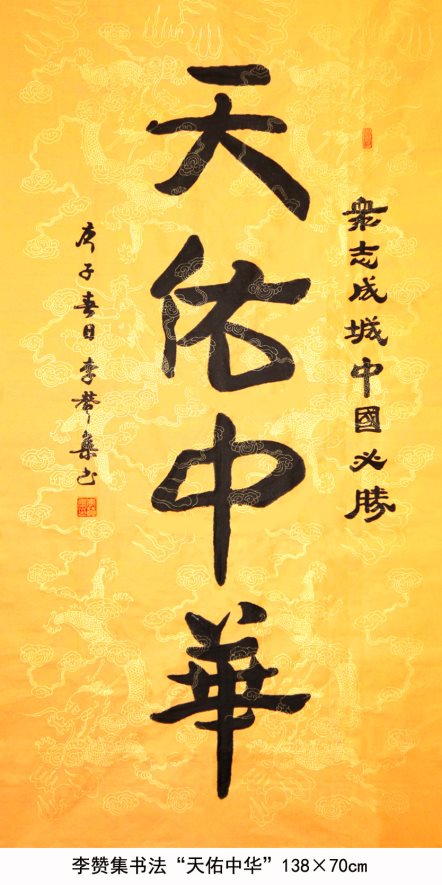 衆志成城中國必勝
天佑中華
庚子春日李赞集书
李赞集书法“天佑中华”138×70cm